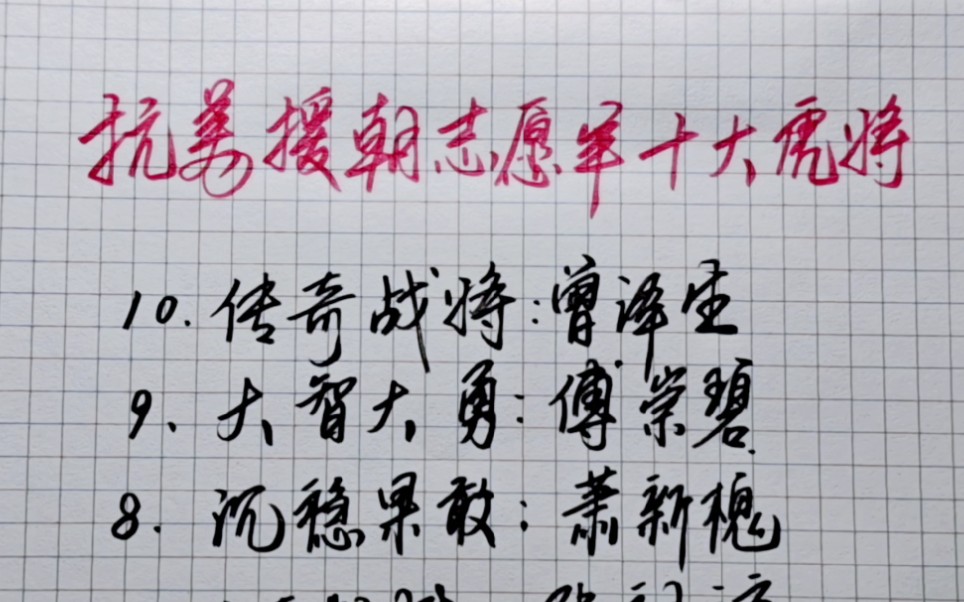 抗美援朝志愿军十大虎将
10.传奇战将:曾泽生
9、大智大勇:傅崇碧
8.沉稳果敢:萧新槐